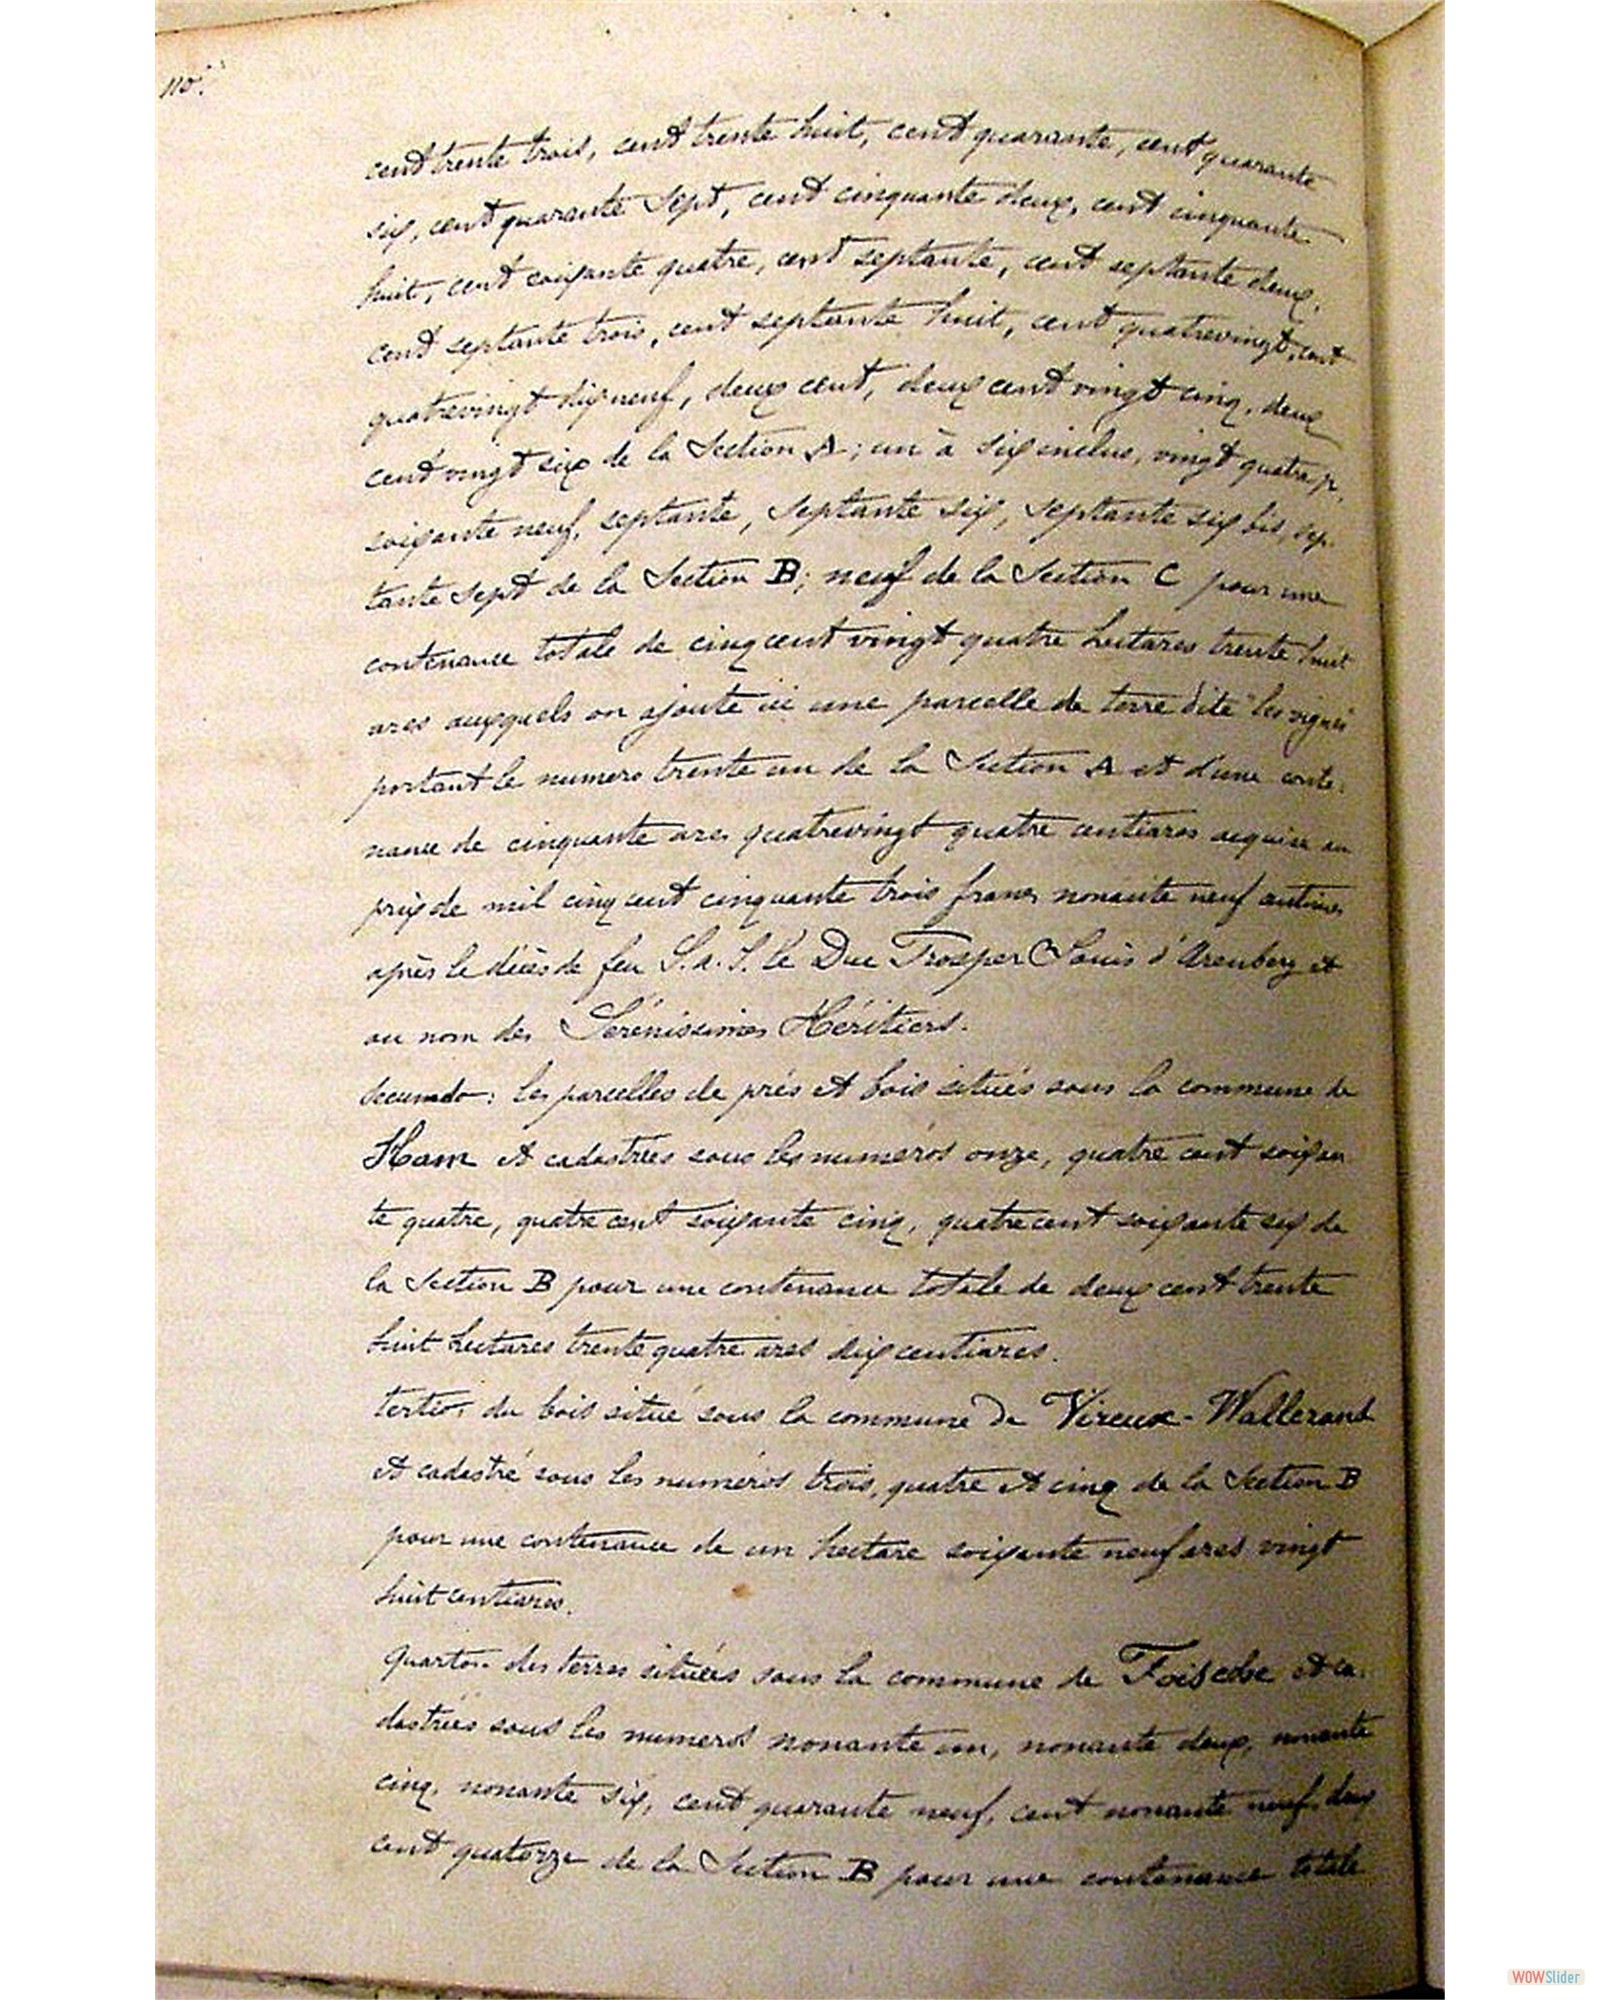 cent trente trois, cent trente huit, cent quarante, cent quarante
six, cent quarante sept, cent cinquante deux, cent cinquante
huit, cent soixante quatre, cent septante, cent septante deux,
cent septante trois, cent septante huit, cent quatrevingt, cent
quatrevingt dix neuf, deux cent, deux cent vingt cinq, deux
cent vingt six de la Section A; un à six inclus, vingt quatre p,
soixante neuf, septante, septante six, septante six bis, sep-
tante sept de la Section B; neuf de la Section C pour une
contenance totale de cinq cent vingt quatre hectares trente huit
ares auxquels on ajoute ici une parcelle de terre dite "les vignes
portant le numero trente un de la Section A et d'une conte-
nance de cinquante ares quatrevingt quatre centiares acquise au
prix de mil cinq cent cinquante trois francs nonante neuf centimes
après le décès de feu S. A. S. le Duc Prosper Louis d'Arenberg et
au nom des Sérénissimes Héritiers.
Secundo: les parcelles de prés et bois situés sous la commune de
Ham et cadastrées sous les numéros onze, quatre cent soixan
te quatre, quatre cent soixante cinq, quatre cent soixante six de
la Section B pour une contenance totale de deux cent trente
huit hectares trente quatre ares dix centiares.
tertio. du bois situé sous la commune de Vireux-Wallerand
et cadastré sous les numéros trois, quatre et cinq de la Section B
pour une contenance de un hectare soixante neuf ares vingt
huit centiares.
Quarto. des terres situées sous la commune de Foische et ca-
dastrées sous les numeros nonante un, nonante deux, nonante
cinq, nonante six, cent quarante neuf, cent nonante neuf, deux
cent quatorze de la Section B pour une contenance totale
WOWSlider